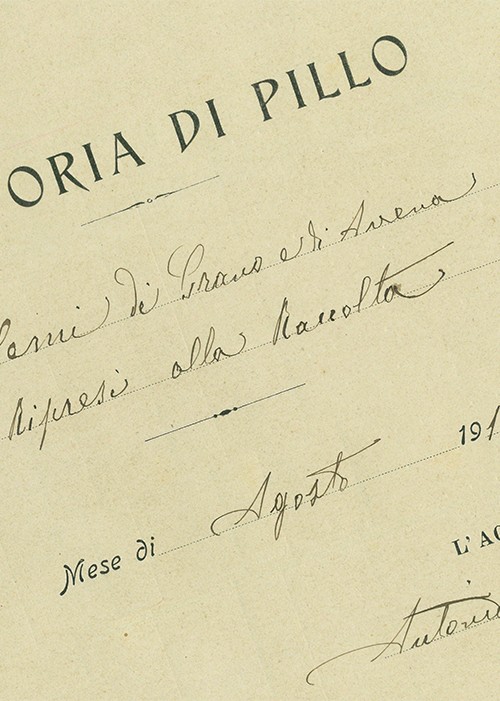 ORIA DI PILLO
Semi di Grano e di Avena
Ripresi alla Raccolta
Mese di Agosto 191
L'AG
Antonio